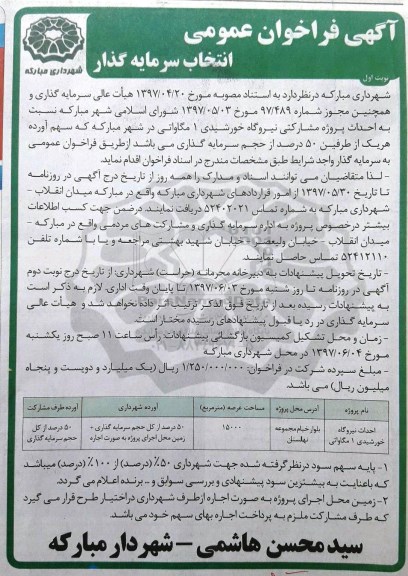 آگهی فراخوان عمومی
انتخاب سرمایه گذار
شهرداری مبارکه
نوبت اول
شهرداری مبارکه در نظر دارد به استناد مصوبه مورخ ۱۳۹۷/۰۴/۲۰ هیأت عالی سرمایه گذاری و
همچنین مجوز شماره ۹۷/۴۸۹ مورخ ۱۳۹۷/۰۵/۰۳ شورای اسلامی شهر مبارکه نسبت
به احداث پروژه مشارکتی نیروگاه خورشیدی ۱ مگاواتی در شهر مبارکه که سهم آورده
هریک از طرفین ۵۰ درصد از حجم سرمایه گذاری می باشد از طریق فراخوان عمومی
به سرمایه گذار واجد شرایط طبق مشخصات مندرج در اسناد فراخوان اقدام نماید.
- لذا متقاضیان می توانند اسناد و مدارک را همه روز از تاریخ درج آگهی در روزنامه
تا تاریخ ۱۳۹۷/۰۵/۳۰ از امور قراردادهای شهرداری مبارکه واقع در مبارکه میدان انقلاب -
شهرداری مبارکه به شماره تماس ۵۲۴۰۲۰۲۱ دریافت نمایند. در ضمن جهت کسب اطلاعات
بیشتر در خصوص پروژه به اداره سرمایه گذاری و مشارکت های مردمی واقع در مبارکه -
میدان انقلاب - خیابان ولیعصر - خیابان شهید بهشتی مراجعه و یا با شماره تلفن
۵۲۴۱۲۱۱۰ تماس حاصل نمایند.
- تاریخ تحویل پیشنهادات به دبیرخانه محرمانه (حراست) شهرداری: از تاریخ درج نوبت دوم
آگهی در روزنامه تا روز شنبه مورخ ۱۳۹۷/۰۶/۰۳ تا پایان وقت اداری. لازم به ذکر است
به پیشنهادات رسیده بعد از تاریخ فوق الذکر ترتیب اثر داده نخواهد شد و هیأت عالی
سرمایه گذاری در رد یا قبول پیشنهادهای رسیده مختار است.
- زمان و محل تشکیل کمیسیون بازگشائی پیشنهادات: رأس ساعت ۱۱ صبح روز یکشنبه
مورخ ۱۳۹۷/۰۶/۰۴ در محل شهرداری مبارکه
- مبلغ سپرده شرکت در فراخوان: ۱/۲۵۰/۰۰۰/۰۰۰ ریال (یک میلیارد و دویست و پنجاه
میلیون ریال) می باشد.
نام پروژه | آدرس محل پروژه | مساحت عرصه (مترمربع) | آورده شهرداری | آورده طرف مشارکت
احداث نیروگاه خورشیدی ۱ مگاواتی | بلوار خیام مجموعه نهلستان | ۱۵۰۰۰ | ۵۰ درصد از کل حجم سرمایه گذاری + زمین محل اجرای پروژه به صورت اجاره | ۵۰ درصد از کل حجم سرمایه گذاری
۱- پایه سهم سود در نظر گرفته شده جهت شهرداری ۵۰٪ (درصد) از ۱۰۰٪ (درصد) میباشد
که با عنایت به بیشترین سود پیشنهادی و بررسی سوابق و... برنده اعلام می گردد.
۲- زمین محل اجرای پروژه به صورت اجاره از طرف شهرداری در اختیار طرح قرار می گیرد
که طرف مشارکت ملزم به پرداخت اجاره بهای سهم خود می باشد.
سید محسن هاشمی - شهردار مبارکه